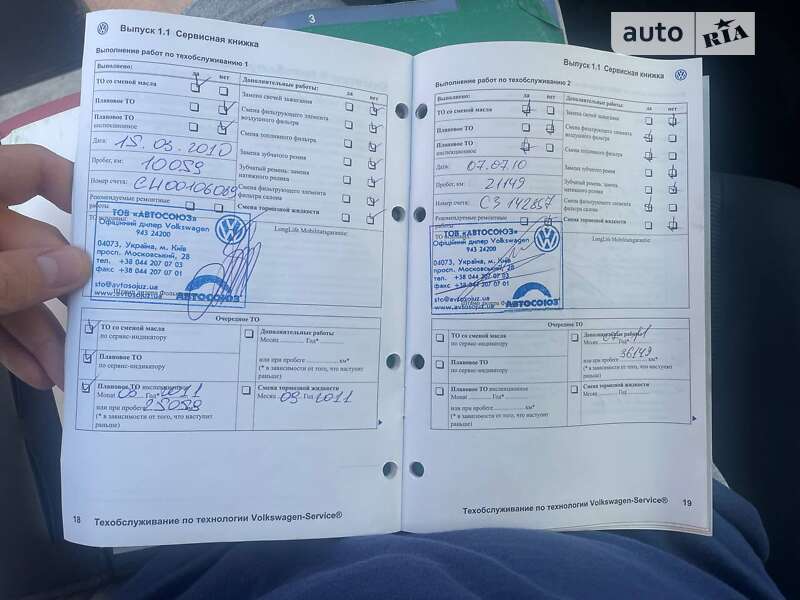 3
auto RIA
Выпуск 1.1 Сервисная книжка
Выполнение работ по техобслуживанию 1
Выполнено: да нет
ТО со сменой масла
Плановое ТО
Плановое ТО
инспекционное
Дата: 15.03.2010
Пробег, км: 10059
Номер счета: СН00106089
Рекомендуемые ремонтные
работы
Дополнительные работы: да нет
Замена свечей зажигания
Смена фильтрующего элемента
воздушного фильтра
Смена топливного фильтра
Замена зубчатого ремня
Зубчатый ремень: замена
натяжного ролика
Смена фильтрующего элемента
фильтра салона
Смена тормозной жидкости
LongLife Mobilitätsgarantie:
ТОВ «АВТОСОЮЗ»
Офіційний дилер Volkswagen
943 24200
04073, Україна, м. Київ
просп. Московський, 28
тел. +38 044 207 07 03
факс +38 044 207 07 01
sto@avtosojuz.ua
www.avtosojuz.ua
АВТОСОЮЗ
Очередное ТО
ТО со сменой масла
по сервис-индикатору
Плановое ТО
по сервис-индикатору
Плановое ТО инспекционное
Monat 03 Год* 2011
или при пробеге 25059
(* в зависимости от того, что наступит
раньше)
Дополнительные работы:
Месяц ........ Год* ........
или при пробеге ........ км*
(* в зависимости от того, что наступит
раньше)
Смена тормозной жидкости
Месяц 03 Год 2011
18 Техобслуживание по технологии Volkswagen-Service®
Выпуск 1.1 Сервисная книжка
Выполнение работ по техобслуживанию 2
Выполнено: да нет
ТО со сменой масла
Плановое ТО
Плановое ТО
инспекционное
Дата: 07.07.10
Пробег, км: 21149
Номер счета: СЗ 142857
Рекомендуемые ремонтные
Дополнительные работы: да нет
Замена свечей зажигания
Смена фильтрующего элемента
воздушного фильтра
Смена топливного фильтра
Замена зубчатого ремня
Зубчатый ремень: замена
натяжного ролика
Смена фильтрующего элемента
фильтра салона
Смена тормозной жидкости
LongLife Mobilitätsgarantie:
ТОВ «АВТОСОЮЗ»
Офіційний дилер Volkswagen
943 24200
04073, Україна, м. Київ
просп. Московський, 28
тел. +38 044 207 07 03
факс +38 044 207 07 01
sto@avtosojuz.ua
www.avtosojuz.ua
АВТОСОЮЗ
Очередное ТО
ТО со сменой масла
по сервис-индикатору
Плановое ТО
по сервис-индикатору
Плановое ТО инспекционное
Monat ........ Год* ........
или при пробеге ........ км*
(* в зависимости от того, что наступит
раньше)
Дополнительные работы:
Месяц Год*
или при пробеге 36149 км*
(* в зависимости от того, что наступит
раньше)
Смена тормозной жидкости
Месяц ........ Год ........
Техобслуживание по технологии Volkswagen-Service® 19